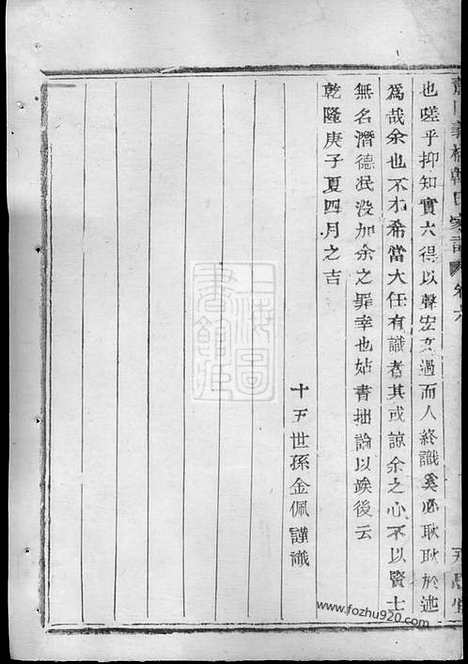 蕭山義橋韓氏家譜 卷六
也嗟乎抑知實大得以聲宏文過而人終識奚必耿耿於述
為哉余也不才希當大任有識者其或諒余之心不以賢士
無名潛德泯没加余之罪幸也姑書拙論以竢後云
乾隆庚子夏四月之吉
十五世孫金佩謹識
上海圖書館藏
www.fozhu920.com